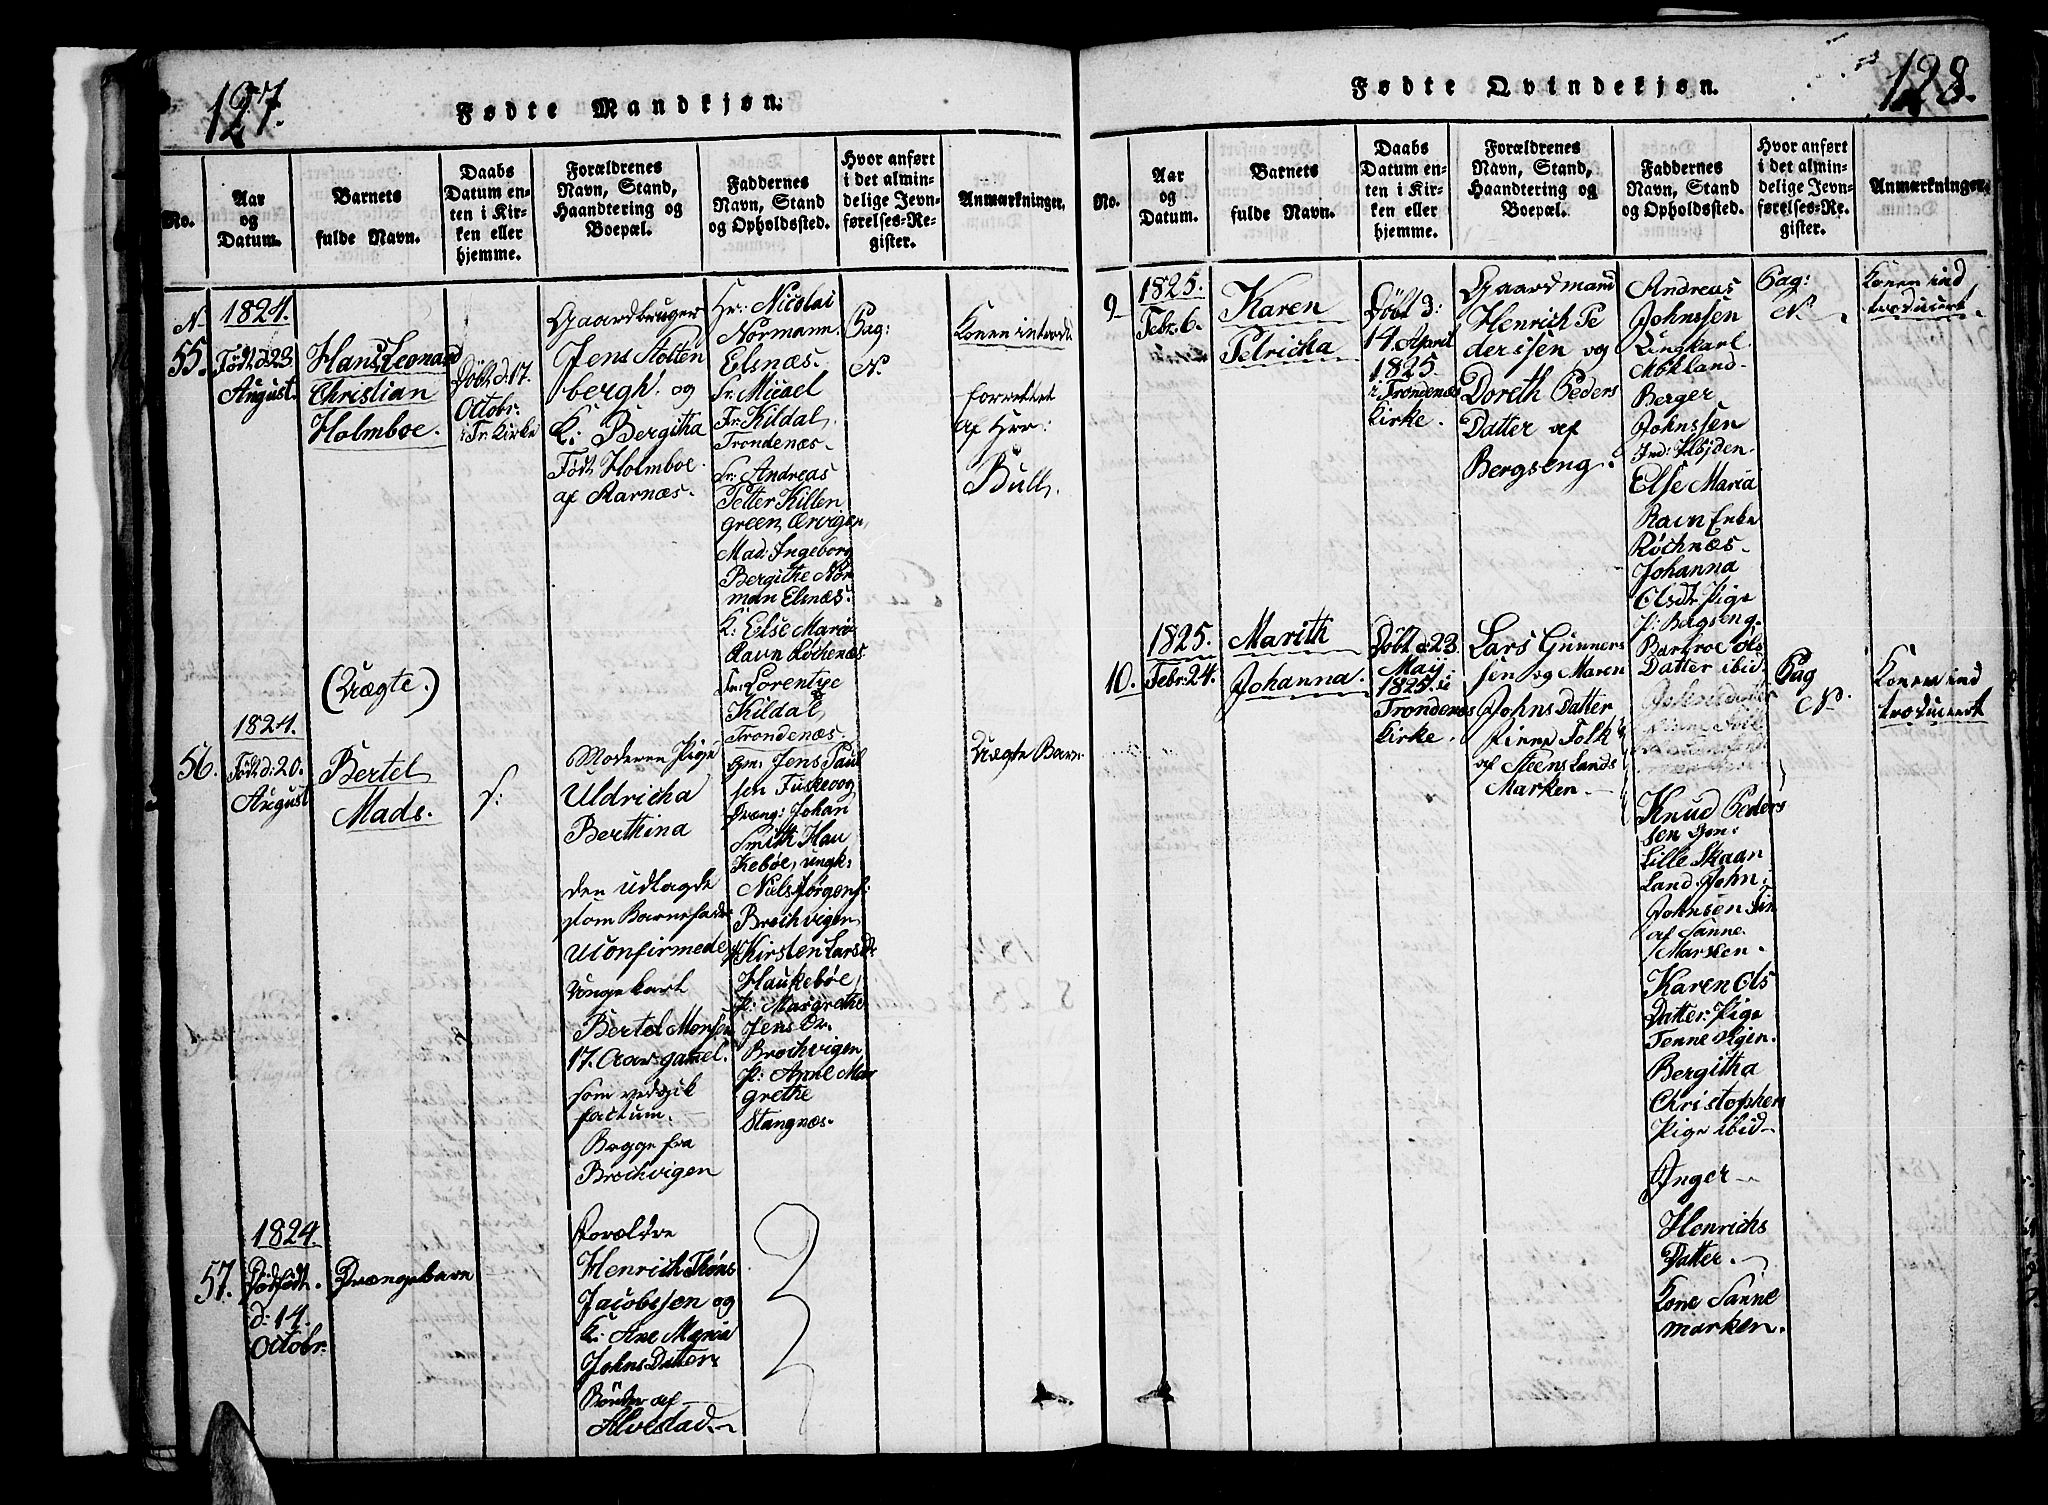 127.
Fødte Mandkjøn.
No.
Aar
og
Datum.
Barnets
fulde Navn.
Daabs
Datum en-
ten i Kir-
ken eller
hjemme.
Forældrenes
Navn, Stand,
Haandtering og
Boepæl.
Faddernes
Navn, Stand
og Opholdssted.
Hvor anført
i det almin-
delige Jevn-
førelses-Re-
gister.
Anmærkninger.
N
55.
1824.
Født d: 23
August.
Hans Leonard
Christian
Holmboe.
Døbt d: 17.
Octobr:
i Tr: Kirke
Gaardbruger
Jens Stolten
bergh. og
K: Bergitha
Født Holmboe.
af Aarnæs.
Hr: Nicolai
Normann.
Elsnæs.
Sr. Micael
Fr. Kildal,
Trondenæs.
Sr. Andreas
Petter Killen
green, Ervigen,
Mad: Ingeborg
Bergithe Nor
man Elsnæs.
K: Else Maria
Ravn Røchenæs
Lorentze
Kildal,
Trondenæs.
Pag:
N.
Konen introd:
forrettet
af Hrr:
Bull.
(Uægte.)
56.
1824.
Født d: 20.
August
Bertel
Mads.
Moderen Pige
Uldricha
Berthina
den udlagde
som Barnefader
Uconfirmede
Ungekarl
Bertel Monsen
17. Aar gamel.
som vedgik
factum.
Begge fra
Brochvigen
Gm: Jens Paul
sen Fuskevog
Dreng: Johan
Smith Hau
kebøe, ungk:
Niels Jørgens:
Brochvigen
Kirsten Larsd:
Haukebøe,
p: Margrethe
Jens Dr.
Brochvigen
p: Anne Mar
grethe
Stangnæs.
Uægte Barn
57.
1824.
Dødfødt.
d: 14.
Octobr.
Drængebarn
Forældre
Henrich Thøns
Jacobsen og
K: Ane Maria
Johns Datter
Bønder af
Alvestad.
128.
Fødte Qvindekjøn.
No.
Aar
og
Datum.
Barnets
fulde Navn.
Daabs
Datum en-
ten i Kir-
ken eller
hjemme.
Forældrenes
Navn, Stand,
Haandtering og
Boepæl.
Faddernes
Navn, Stand
og Opholdssted.
Hvor anført
i det almin-
delige Jevn-
førelses-Re-
gister.
Anmærkninger.
9
1825.
Febr: 6.
Karen
Petricha
Døbt d:
14. April
1825.
i Trondenæs
Kirke.
Gaardmand
Henrich Pe
dersen og
Doreth Peders
Datter af
Bergseng.
Andreas
Johnssen
Ungkarl
Møkland.
Berger
Johnssen
Ind: Kløjden.
Else Maria
Ravn Enke
Røchnæs.
Johanna
Olsdr. Pige
p: Bergseng.
Ols
Datter ibid:
Pag:
N.
Konen ind
troducert.
10.
1825.
Febr: 24.
Marith
Johanna.
Døbt d: 23.
Maij
1825. i
Trondenæs
Kirke.
Lars Gunners
sen og Maren
Johns Datter
Finne Folk
af Steens Lands
Marken.
Knud Peders
sen Gm:
Lille Skaan
Land John
Johnsen Fin
af Sanne
Marken.
Karen Ols
Datter. Pige
Tenne Skjen.
Bergitha
Christophen
Pige ibid
Inger
Henrichs
Datter.
Kone Sanne
marken.
Pag
N.
Konen ind
troducert